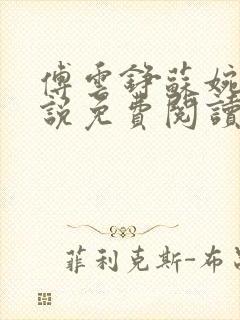 傅雲錚蘇婉
說免費閱讀
菲利克斯-布呂